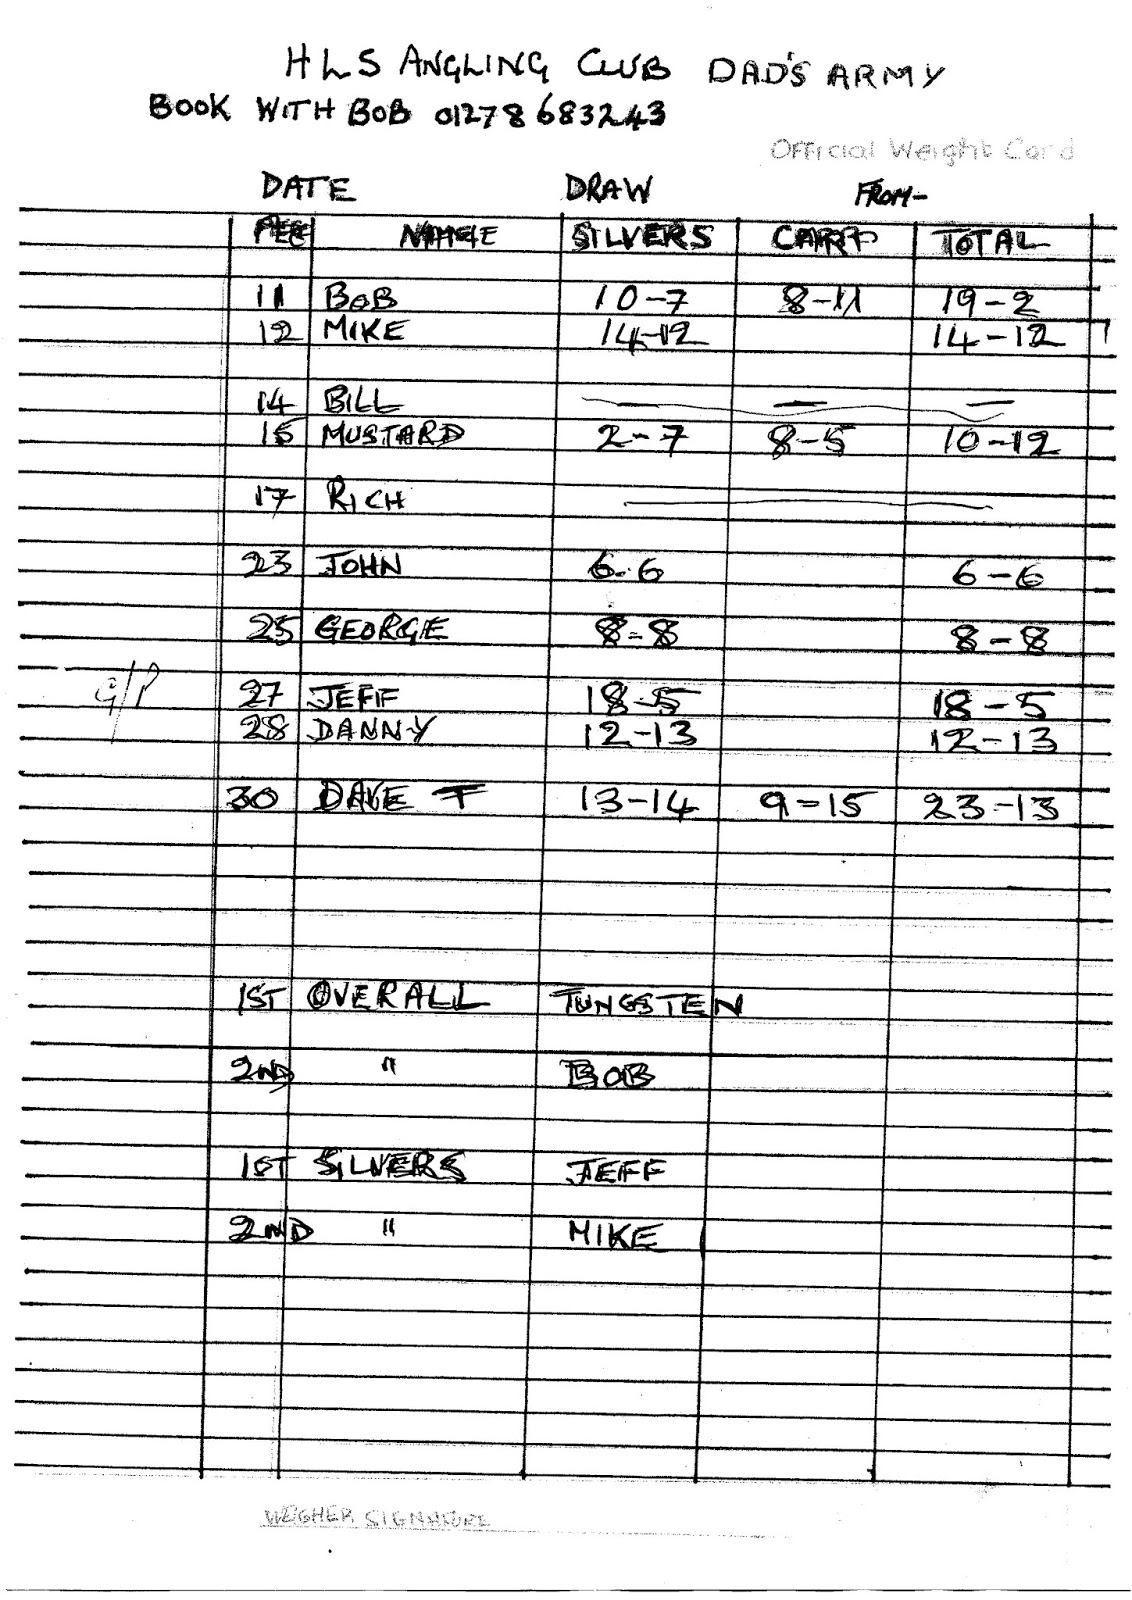 HLS ANGLING CLUB DAD'S ARMY
BOOK WITH BOB 01278 683243
Official Weight Card
DATE DRAW FROM-
PEG NAME SILVERS CARP TOTAL
11 BOB 10-7 8-11 19-2
12 MIKE 14-12 14-12 1
14 BILL — — —
15 MUSTARD 2-7 8-5 10-12
17 RICH
23 JOHN 6-6 6-6
25 GEORGE 8-8 8-8
G/P 27 JEFF 18-5 18-5
28 DANNY 12-13 12-13
30 DAVE T 13-14 9=15 23-13
1ST OVERALL TUNGSTEN
2ND " BOB
1ST SILVERS JEFF
2ND " MIKE
WEIGHER SIGNATURE